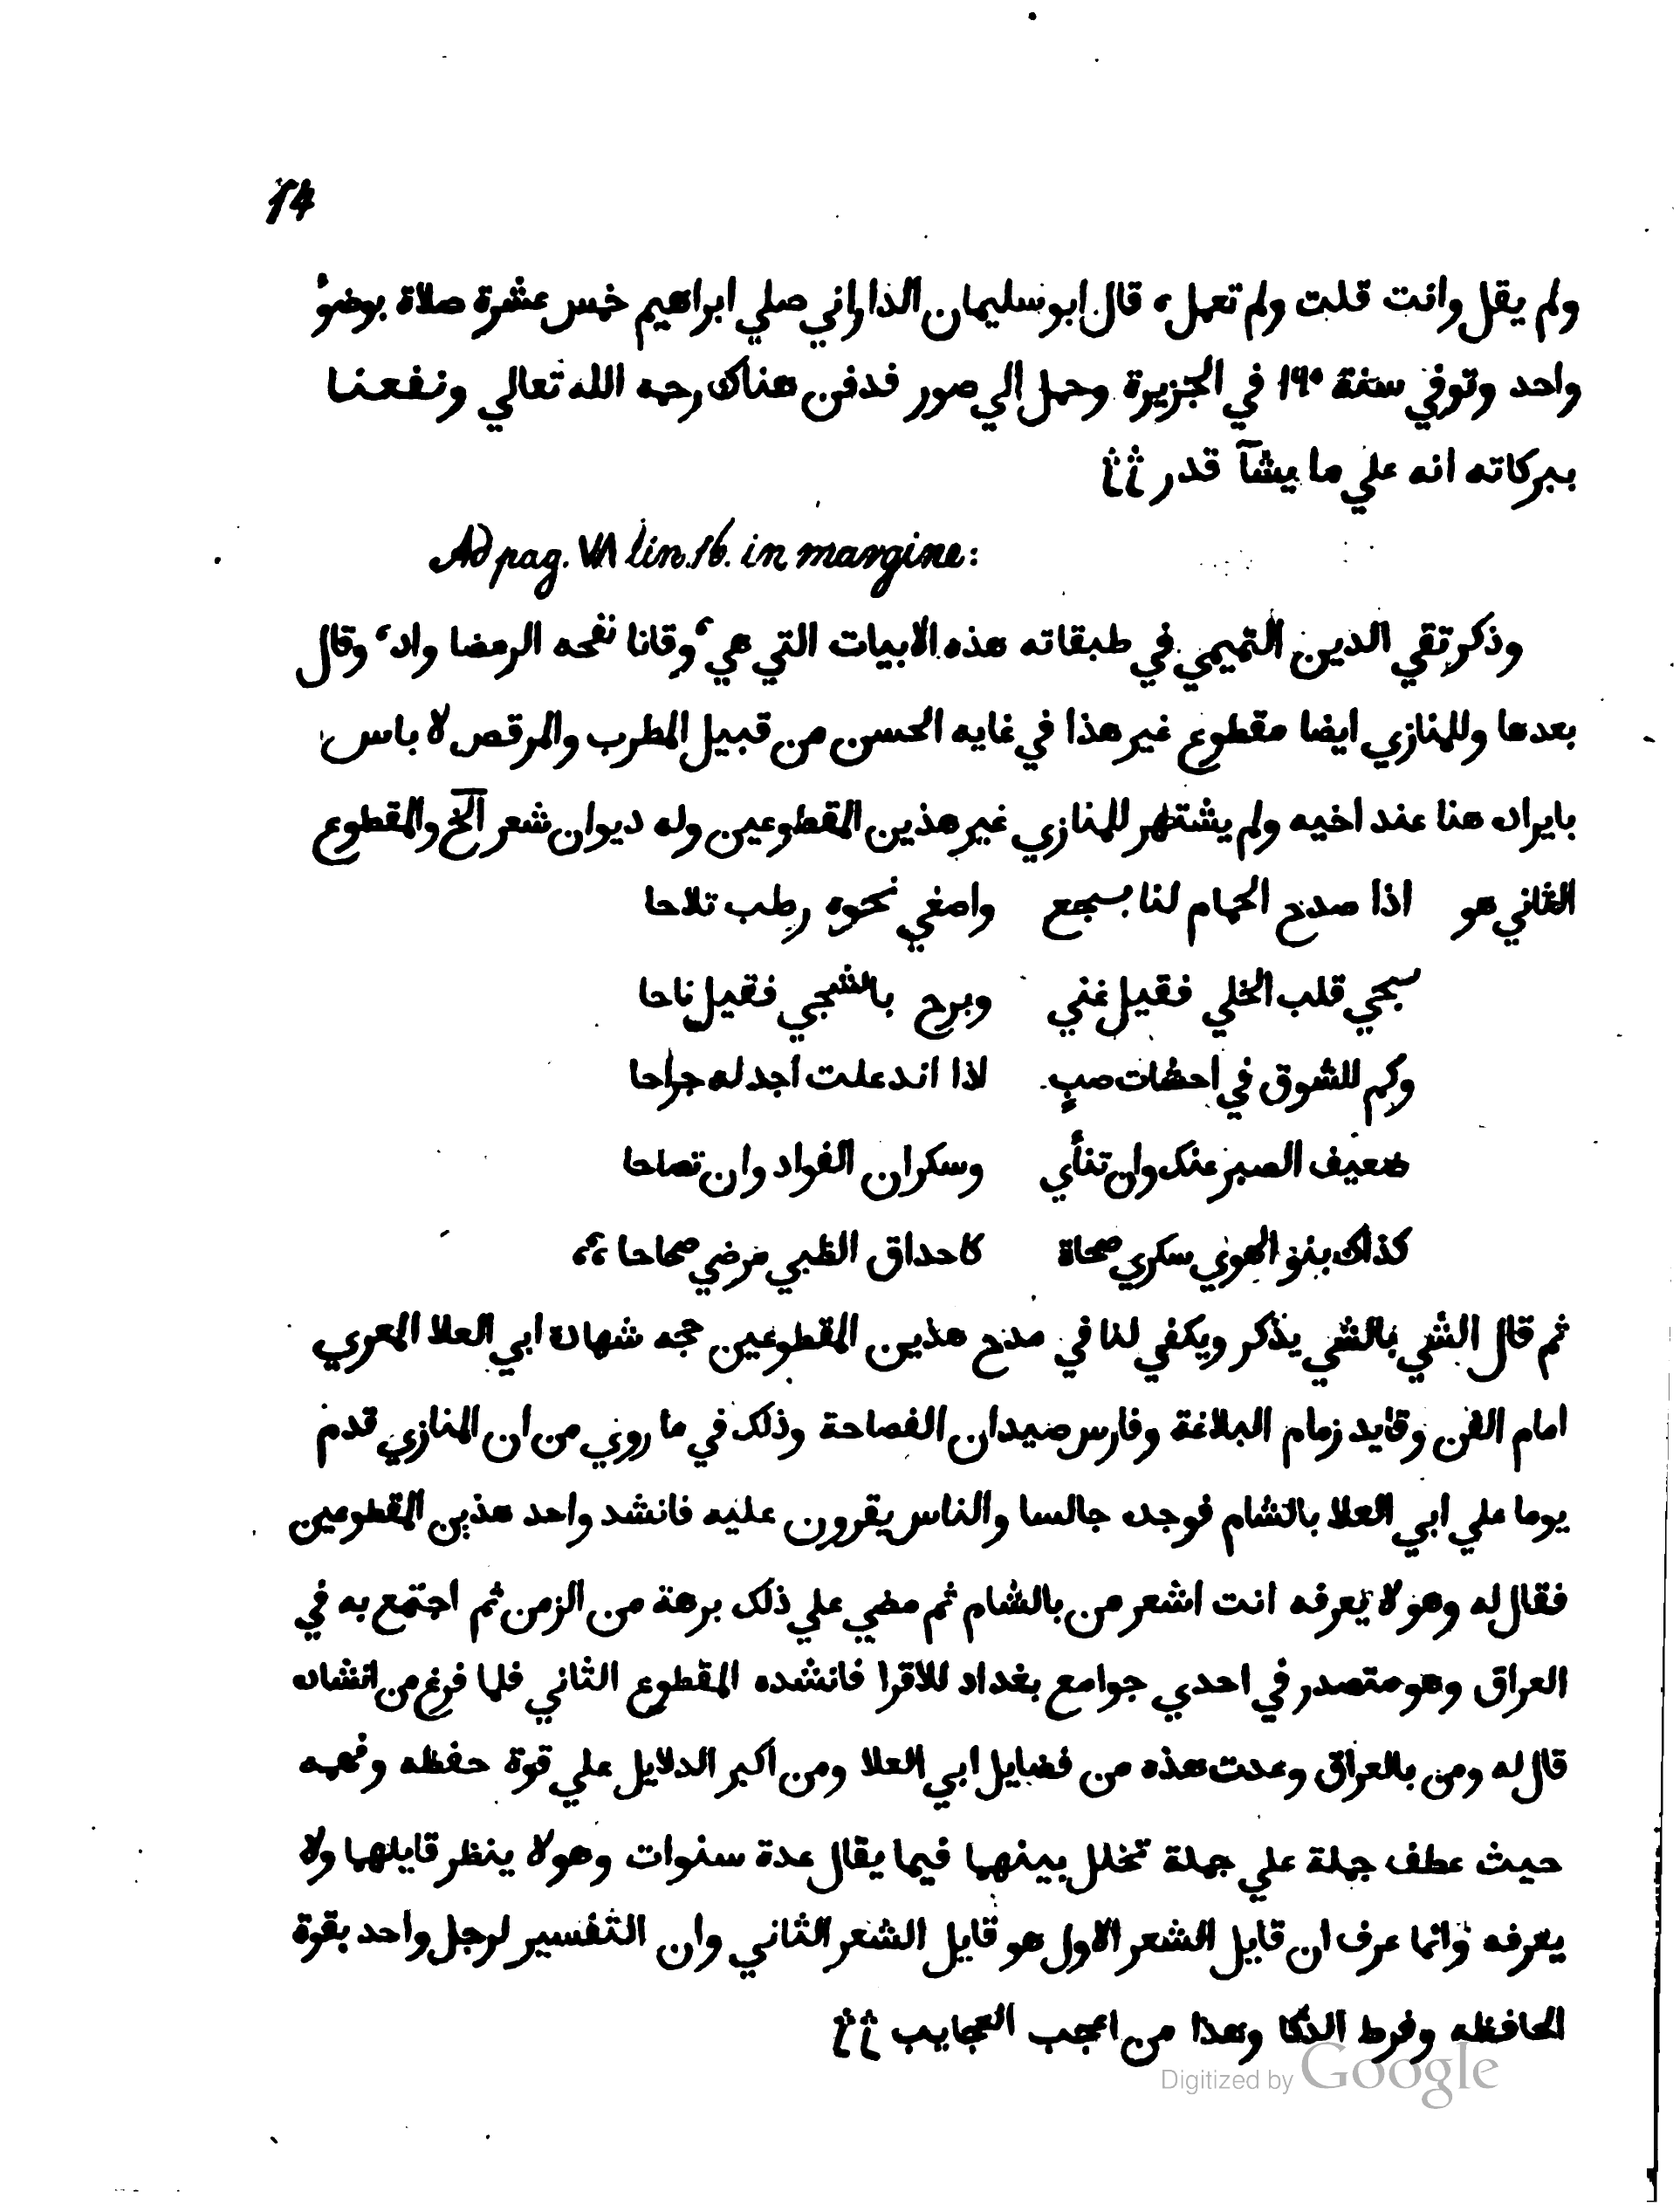 14
ولم يقل وانت قلت ولم تعمل، قال ابو سليمان الداراني صلي ابراهيم خمس عشرة صلاة بوضوء
واحد وتوفي سنة ١٩٠ في الجزيرة وحمل الي صور فدفن هناك رحمه الله تعالي ونفعنا
ببركاته انه علي ما يشآ قدر
Ad pag. ٧٨ lin. 16. in margine:
وذكر تقي الدين التميمي في طبقاته هذه الابيات التي هي، وقانا نفحه الرمضا واد، وقال
بعدها وللمنازي ايضا مقطوع غير هذا في غايه الحسن من قبيل المطرب والمرقص لا باس
بايراده هنا عند اخيه ولم يشتهر للمنازي غير هذين المقطوعين وله ديوان شعر الخ والمقطوع
الثاني هو اذا صدح الحمام لنا بسجع واصغي نحوه رطب تلاحا
سجي قلب الخلي فقيل غني وبرح بالشجي فقيل ناحا
وكم للشوق في احشات صبٍ لاذا اندعلت اجد له جراحا
ضعيف الصبر عنك وان تنأي وسكران الفواد وان تصاحا
كذاك بنو الهوي سكري صحاة كاحداق الظبي مرضي صحاحا
ثم قال الشي بالشي يذكر ويكفي لنا في مدح هذين المقطوعين حجه شهادة ابي العلا المعري
امام الفن وقايد زمام البلاغة وفارس ميدان الفصاحة وذلك في ما روي من ان المنازي قدم
يوما علي ابي العلا بالشام فوجده جالسا والناس يقرون عليه فانشد واحد هذين المقطوعين
فقال له وهو لا يعرفه انت اشعر من بالشام ثم مضي علي ذلك برهة من الزمن ثم اجتمع به في
العراق وهو متصدر في احدي جوامع بغداد للاقرا فانشده المقطوع الثاني فلما فرغ من انشاده
قال له ومن بالعراق وعدت هذه من فضايل ابي العلا ومن اكبر الدلايل علي قوة حفظه وفهمه
حيث عطف جملة علي جملة تخلل بينهما فيما يقال عدة سنوات وهو لا ينظر قايلهما ولا
يعرفه وانما عرف ان قايل الشعر الاول هو قايل الشعر الثاني وان التفسير لرجل واحد بقوة
الحافظه وفرط الذكا وهذا من اعجب العجايب
Digitized by Google